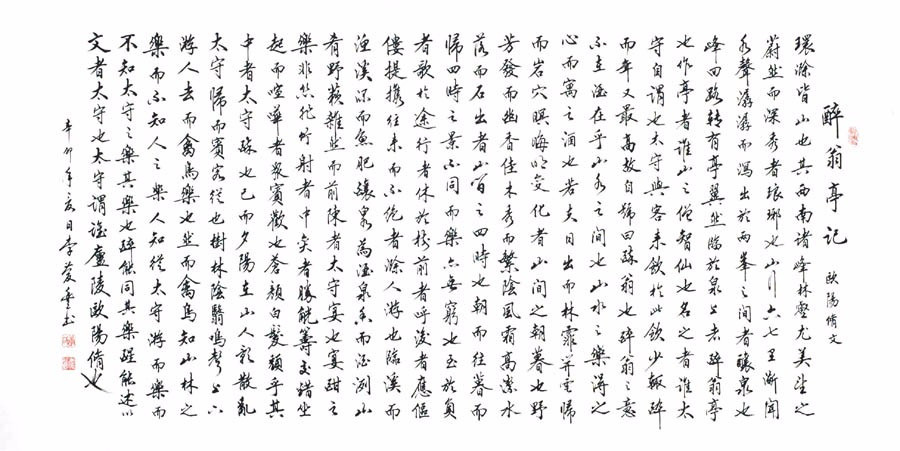 醉翁亭記 歐陽脩文
環滁皆山也其西南諸峰林壑尤美望之
蔚然而深秀者琅琊也山行六七里漸聞
水聲潺潺而瀉出於兩峯之間者釀泉也
峰回路轉有亭翼然臨於泉上者醉翁亭
也作亭者誰山之僧智仙也名之者誰太
守自謂也太守與客來飲於此飲少輒醉
而年又最高故自號曰醉翁也醉翁之意
不在酒在乎山水之間也山水之樂得之
心而寓之酒也若夫日出而林霏開雲歸
而岩穴暝晦明變化者山間之朝暮也野
芳發而幽香佳木秀而繁陰風霜高潔水
落而石出者山間之四時也朝而往暮而
歸四時之景不同而樂亦無窮也至於負
者歌於途行者休於樹前者呼後者應傴
僂提攜往來而不絕者滁人游也臨溪而
漁溪深而魚肥釀泉為酒泉香而酒洌山
肴野蔌雜然而前陳者太守宴也宴酣之
樂非絲非竹射者中奕者勝觥籌交錯坐
起而喧嘩者眾賓歡也蒼顏白髮頹乎其
中者太守醉也已而夕陽在山人影散亂
太守歸而賓客從也樹林陰翳鳴聲上下
游人去而禽鳥樂也然而禽鳥知山林之
樂而不知人之樂人知從太守游而樂而
不知太守之樂其樂也醉能同其樂醒能述以
文者太守也太守謂誰廬陵歐陽脩也
辛卯年亥月李